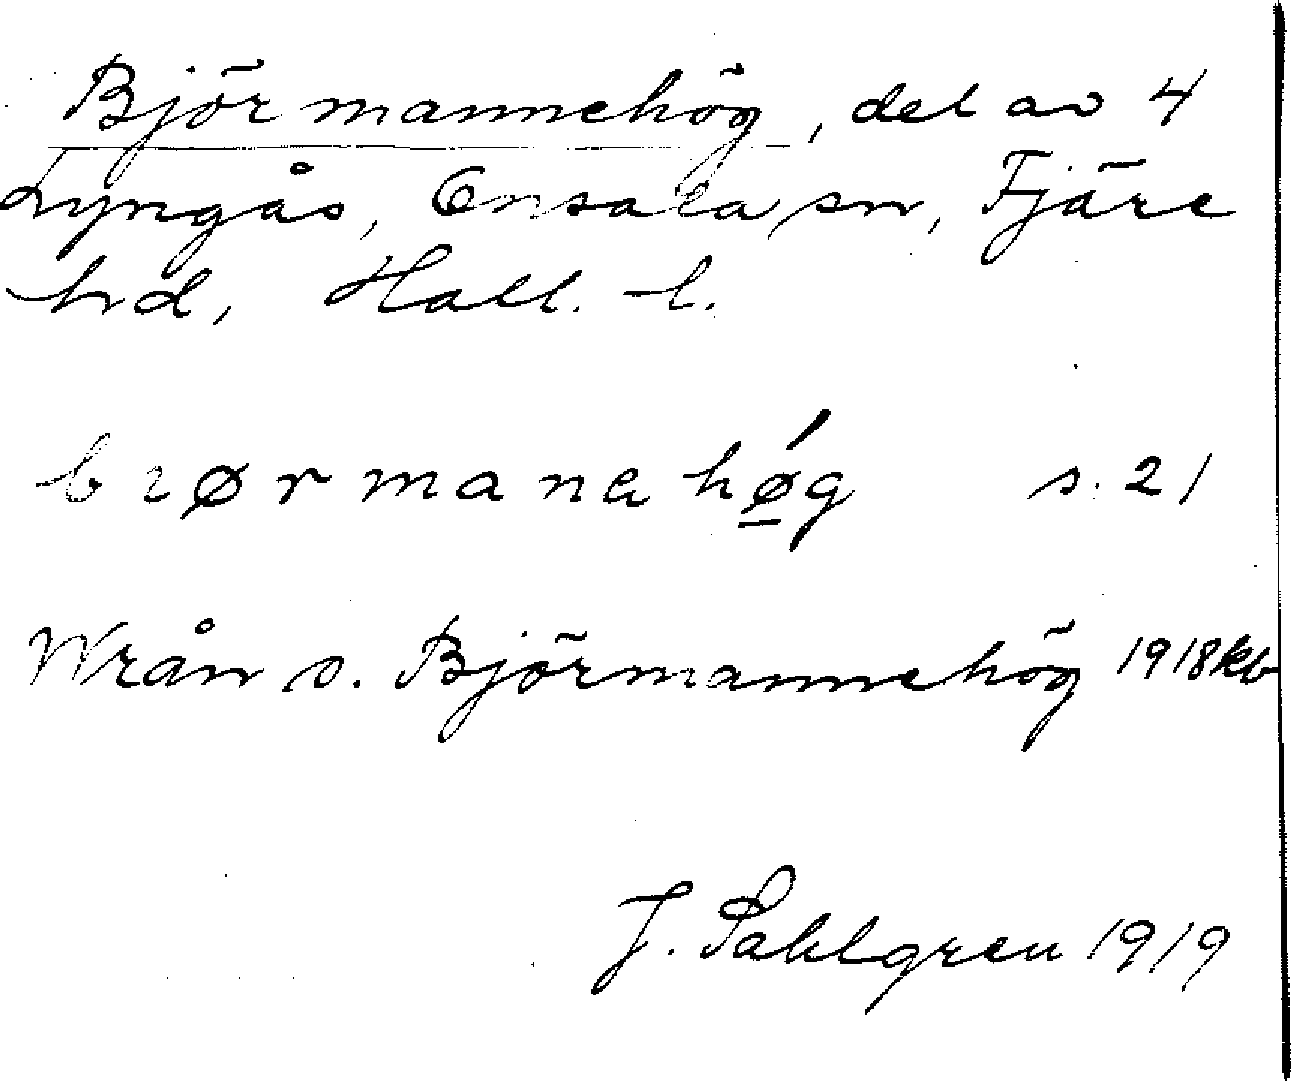 Björmannehög, del av 4
Lyngås, Onsala sn, Fjäre
hd, Hall. l.
bɩørmanahǿg s. 21
Wrån s. Björmannehög 1918 kb
J. Sahlgren 1919